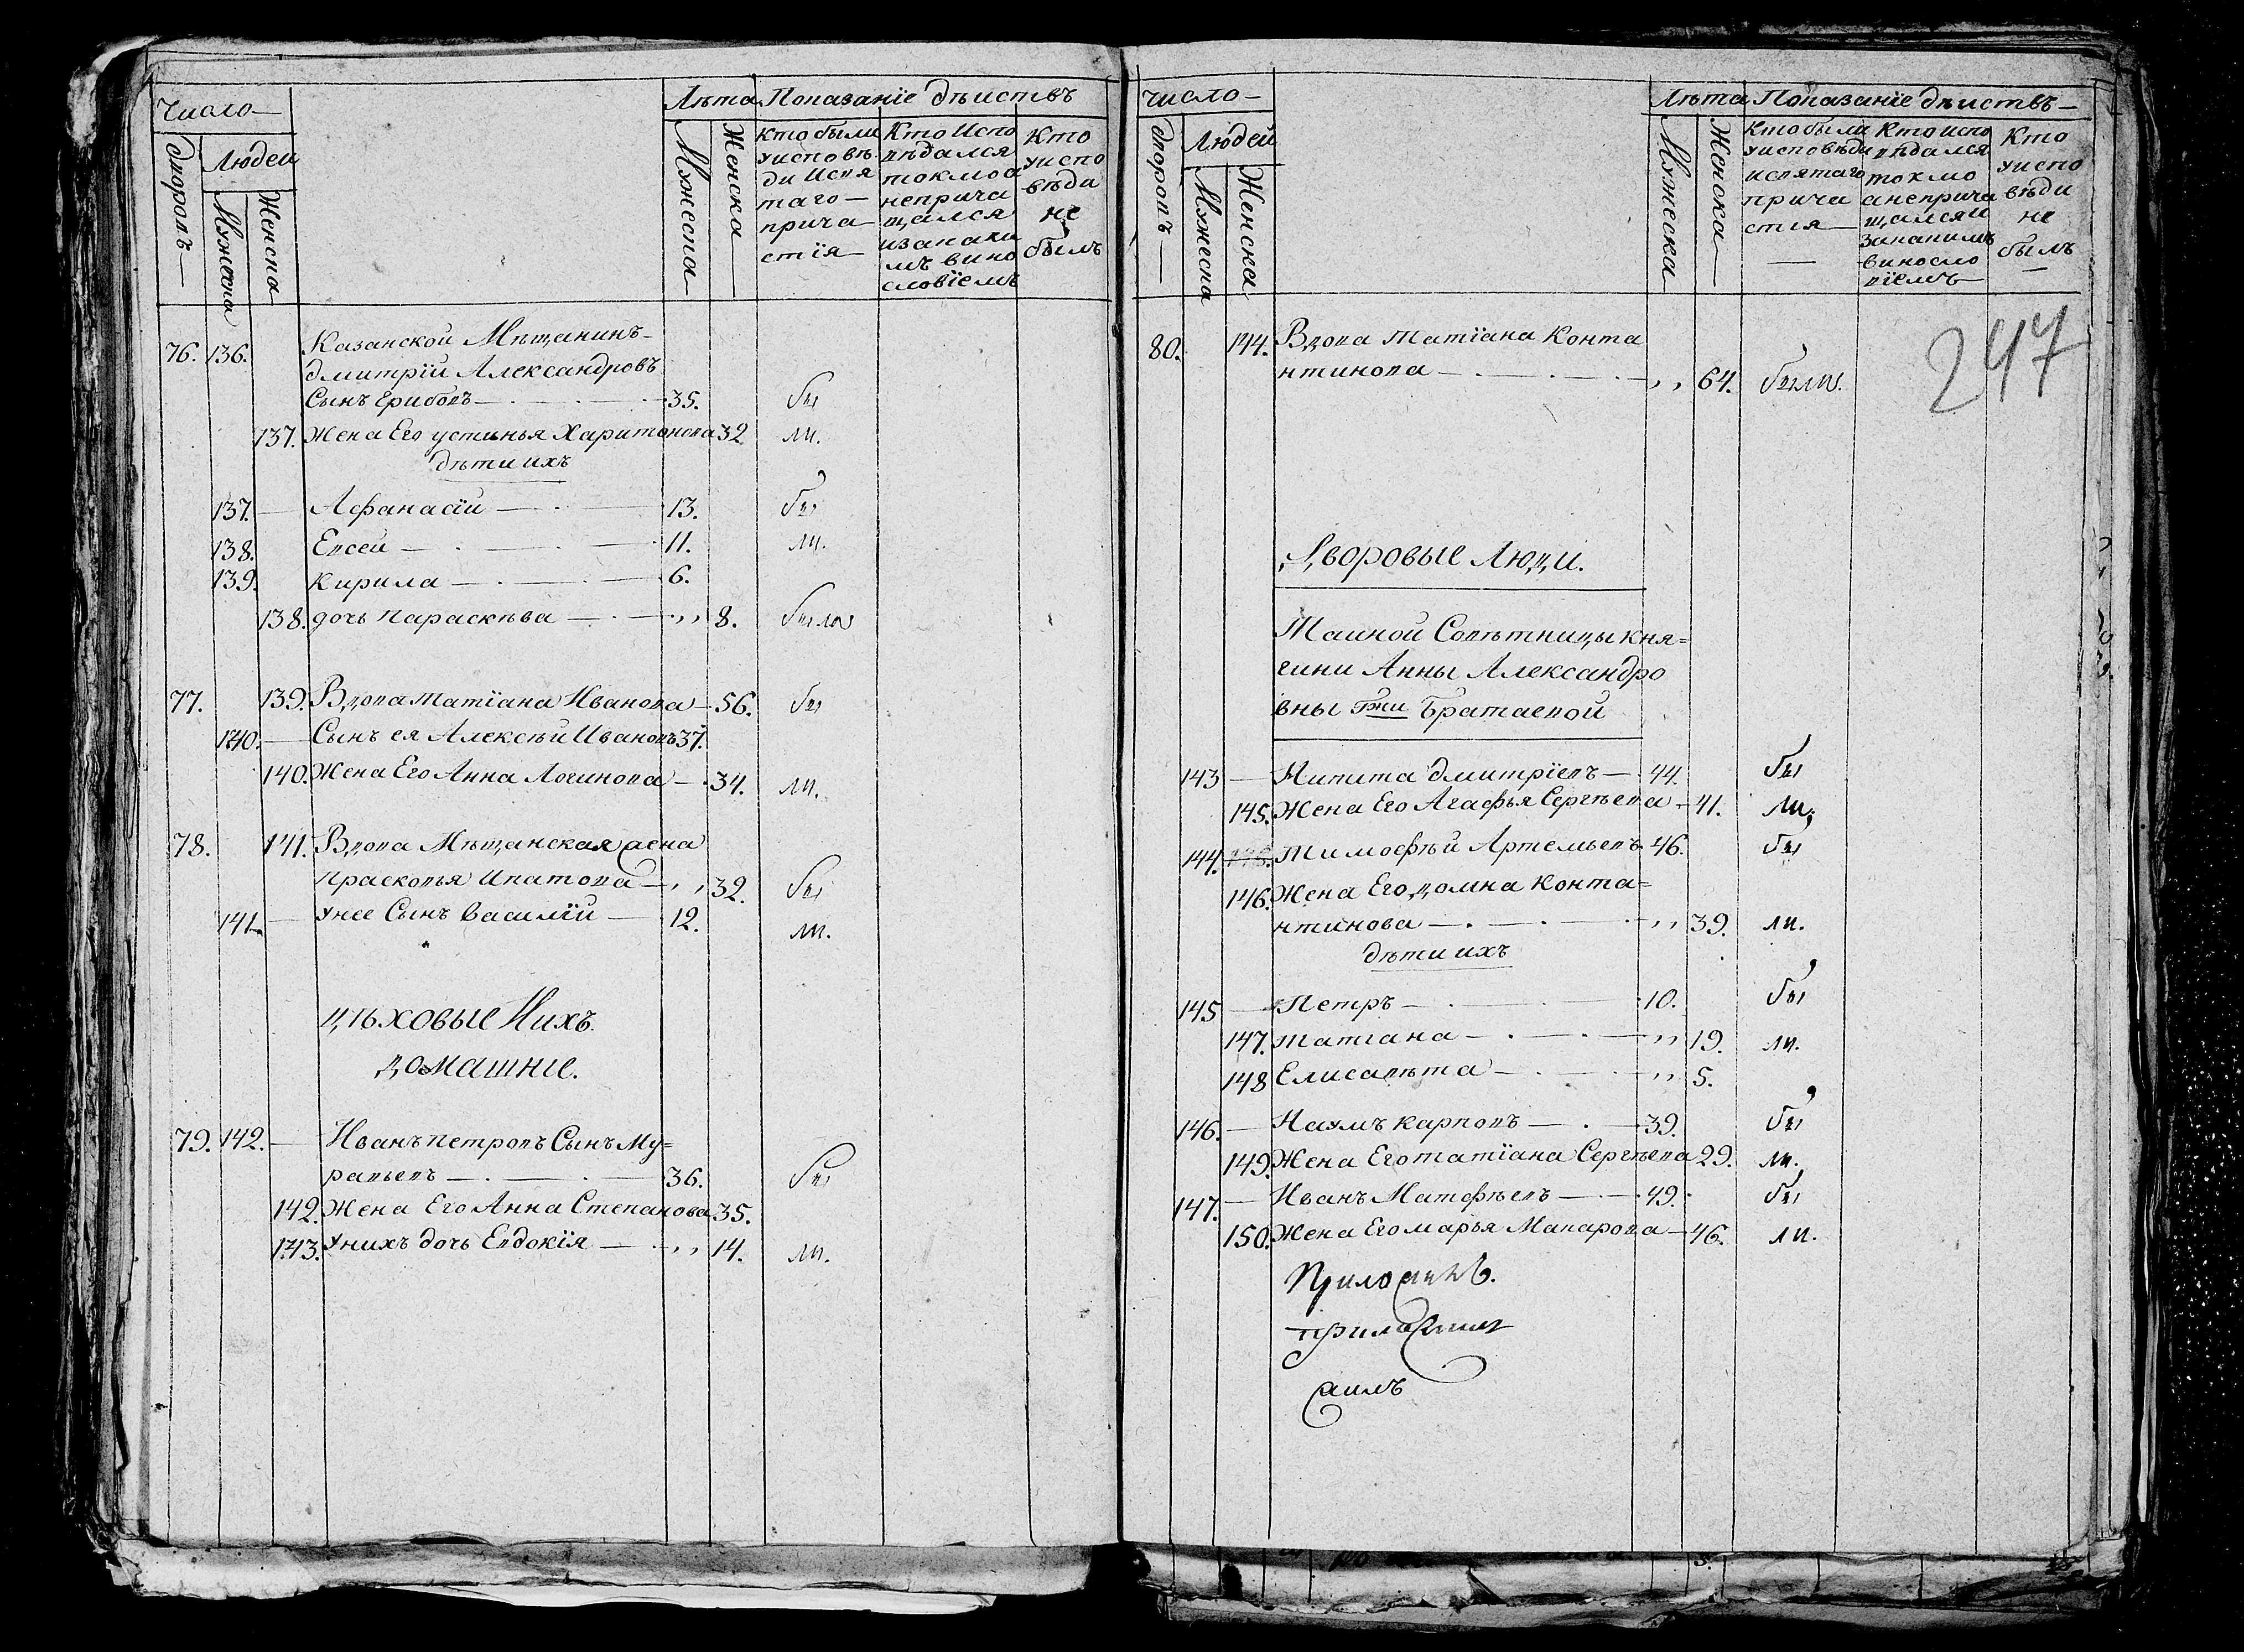 Число
Лѣта Показанїе дѣиствъ
Дворовъ
Людеи
Мужеска
Женска
Мужеска
Женска
Кто были
уисповѣ
ди исвя
таго
прича
стїя
Кто Испо
вѣдался
токмо а
неприча
щался
изакаки
мъ вино
словїемъ
Кто
уиспо
вѣди
не
былъ
76. 136. Казанской Мѣщанинъ
дмитрїи Александровъ
Сынъ Грибовъ 35. бы
137. Жена Его устинья Харитонова 32 ли.
дѣти ихъ
137. Афанасїи 13. бы
138. Евсеи 11. ли.
139. Кирила 6.
138. дочь Параскѣва ,, 8. была
77. 139. Вдова Татїана Иванова 56. бы
140. Сынъ ея Алексѣи Ивановъ 37.
140. Жена Его Анна Логинова 34. ли.
78. 141. Вдова Мѣщанская жена
Прасковья Ипатова ,, 32. бы
141. Унее Сынъ Василїи 12. ли.
Цѣховые Ихъ
домашние.
79. 142. Иванъ Петровъ Сынъ Му=
равьевъ 36. бы
142. Жена Его Анна Степанова 35.
143. Унихъ дочь Евдокїя ,, 14. ли.
Число
Лѣта Показанїе дѣиствъ
Дворовъ
Людей
Мужеска
Женска
Мужеска
Женска
Кто были
уисповѣди
исвятаго
прича
стия
Кто испо
вѣдался
токмо
анеприча
щался и
закакимъ
виносло
вїемъ
Кто
уиспо
вѣди
не
былъ
247
80. 144. Вдова Татїана Конта
нтинова ,, 64. были.
Дворовые Люди.
Таиной Совѣтницы Кня=
гини Анны Александро
вны Гжи Братаевой
143 Никита дмитрїевъ 44. бы
145. Жена Его Агафья Сергѣева 41. ли.
144. Тимофѣй Артемьевъ 46. бы
146. Жена Его домна Конта=
нтинова ,, 39. ли.
дѣти ихъ
145 Петръ 10. бы
147. Татиана ,, 19. ли.
148 Елисавѣта ,, 5.
146. Наумъ Карповъ 39. бы
149. Жена Его татїана Сергѣева 29. ли.
147. Иванъ Матофѣевъ 49. бы
150. Жена Его марья Макарова 46. ли.